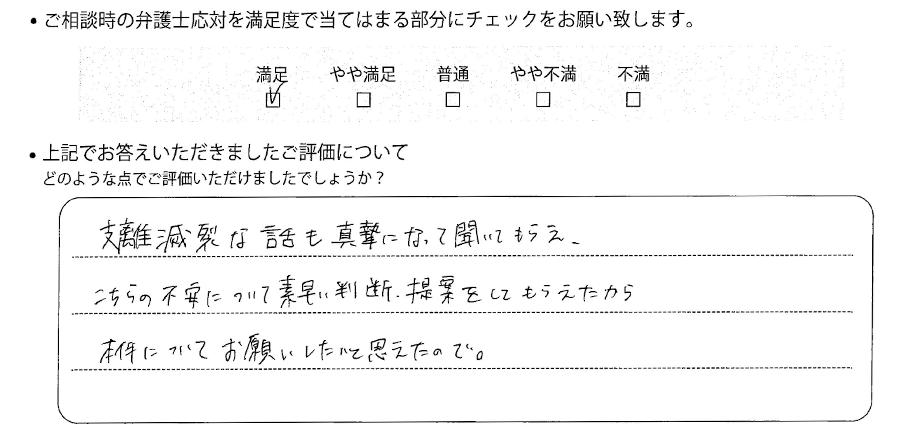 ・ご相談時の弁護士応対を満足度で当てはまる部分にチェックをお願い致します。
満足 やや満足 普通 やや不満 不満
☑ □ □ □ □
・上記でお答えいただきましたご評価について
どのような点でご評価いただけましたでしょうか？
支離滅裂な話も真摯になって聞いてもらえ、
こちらの不安について素早い判断、提案をしてもらえたから
本件についてお願いしたいと思えたので。